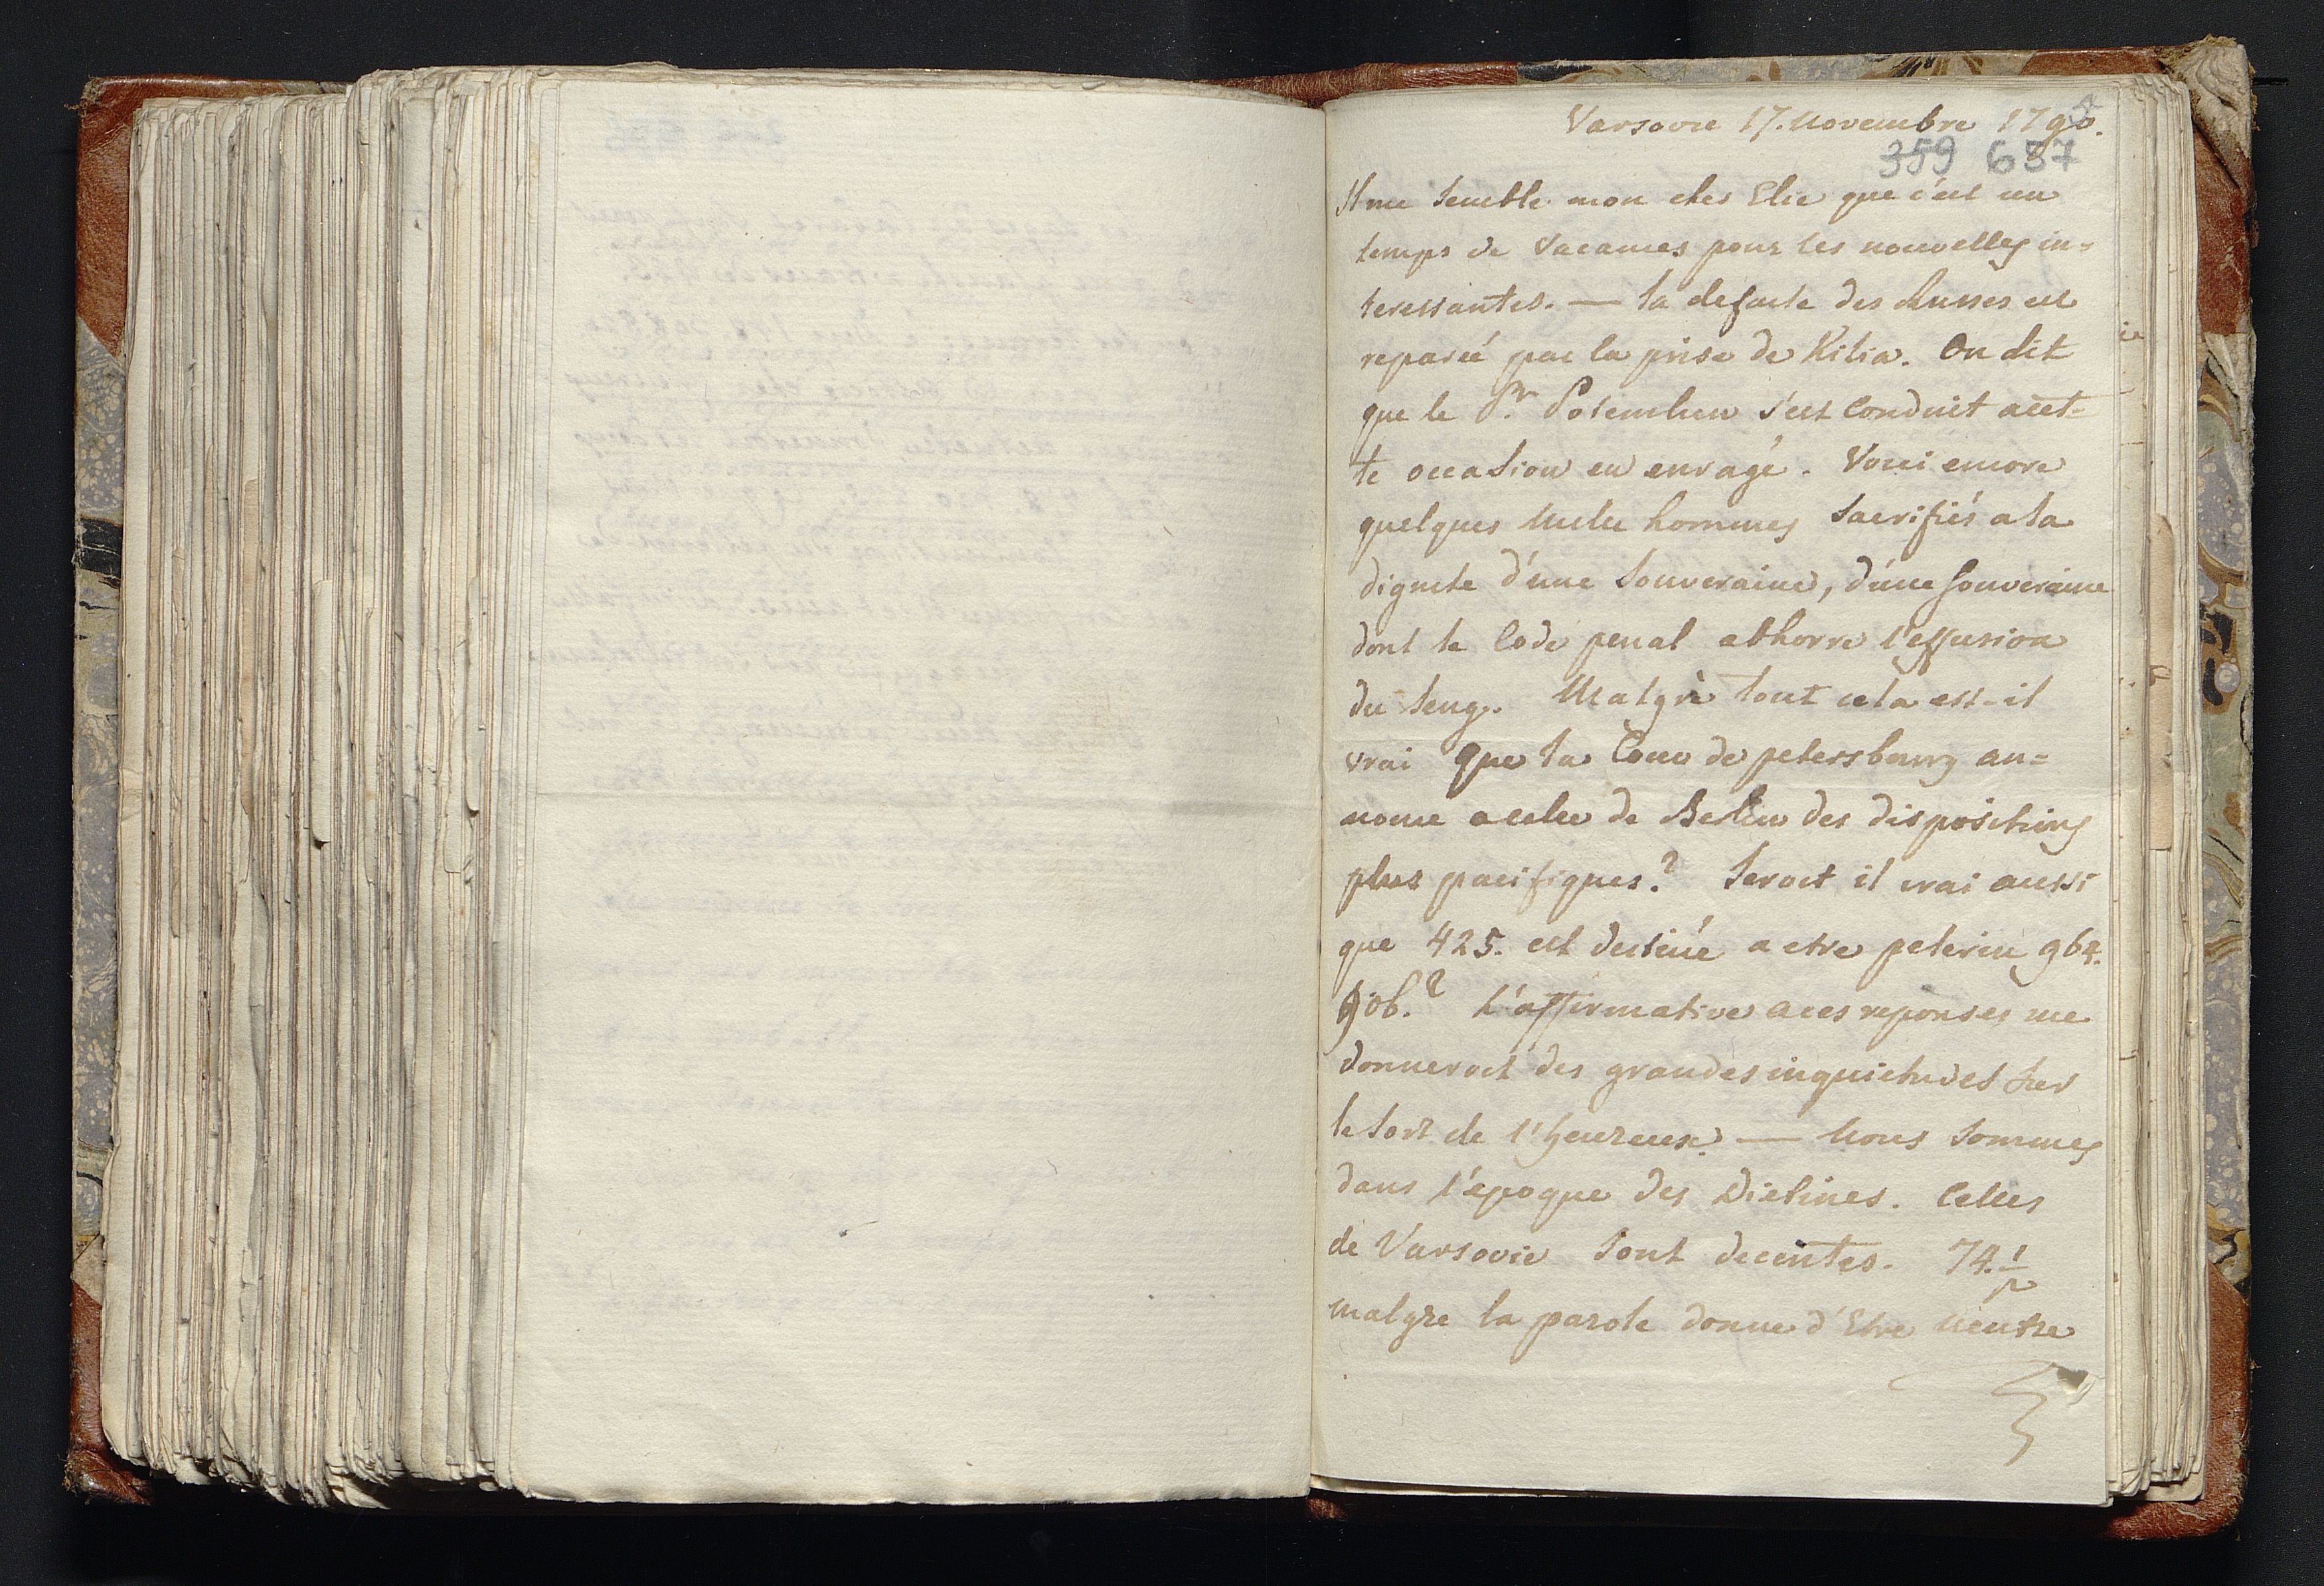 Varsovie 17. Novembre 1790.
359 637
Il me semble mon cher Elie que c'est un
temps de Vacances pour les nouvelles in-
teressantes. — la defaite des Russes est
reparée par la prise de Kilia. On dit
que le Pr. Potemkin s'est conduit a cet-
te occasion en enragé. Voici encore
quelques mille hommes sacrifiés a la
dignite d'une Souveraine, d'une souveraine
dont le Code penal abhorre l'effusion
du seng. Malgrè tout cela est-il
vrai que la Cour de petersbourg an=
nonce a celle de Berlin des dispositions
plus pacifiques? Seroit il vrai aussi
que 425. est destiné a etre pelerin 964.
906.? L'affirmative a ces reponses me
donneroit des grandes inquietudes sur
le sort de l'heureux. — Nous sommes
dans l'époque des Dietines. Celles
de Varsovie sont decentes. 74.
malgre la parole donne d'Etre neutre